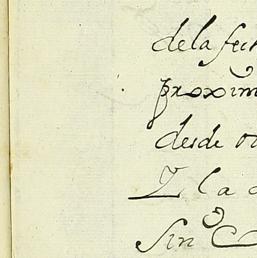 dela fec
proxim
desde o
Y la
sin